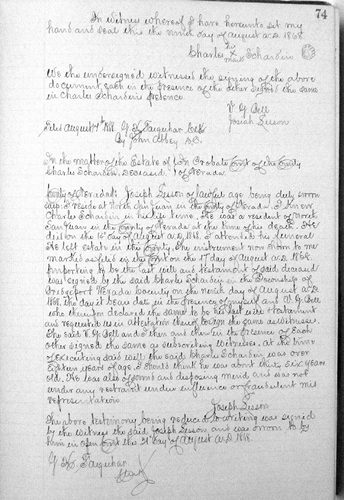 74
In witness whereof I have hereunto set my
hand and seal this the ninth day of August A.D. 1868
Charles his X mark Schardin
We the undersigned witnessed the signing of the above
document each in the presence of the other signed the same
in Charles Schardin's presence.
V. G. Bell
Josiah Lesson
Filed August 17th 1868. G. K. Farquhar Clerk
By John D.C.
In the matter of the Estate of } In Probate Court of the County
Charles Schardin, Deceased } of Nevada
County of Nevada ss Joseph Lesson of lawful age being duly sworn
says: I reside at North San Juan in the County of Nevada. I knew
Charles Schardin in his life time. He was a resident of North
San Juan in the County of Nevada at the time of his death. He
died on the 14 day of August A.D. 1868. I attended his funeral
He left estate in the County. The instrument now shown to me
marked as filed in the Court on the 17 day of August A.D. 1868.
Purporting to be the last will and testament of said deceased
was signed by the said Charles Schardin in the Township of
Bridgeport Nevada County on the ninth day of August A.D.
1868, the day it bears date in the presence of myself and V. G. Bell
who then declared the same to be his last will & testament
and requested us in attestation thereof to sign the same as witnesses.
The said V. G. Bell and I then and there in the presence of each
other signed the same as subscribing witnesses. At the time
of executing said will the said Charles Schardin was over
eighteen years of age. I should think he was about thirty six years
old. He was also of sound and disposing mind and was not
under any restraint undue influence or fraudulent mis
representation.
Joseph Lesson
The above testimony being reduced to writing was signed
by the witness the said Joseph Lesson and was sworn to by
him in open Court the 31 day of August A.D. 1868.
G. K. Farquhar
Clerk